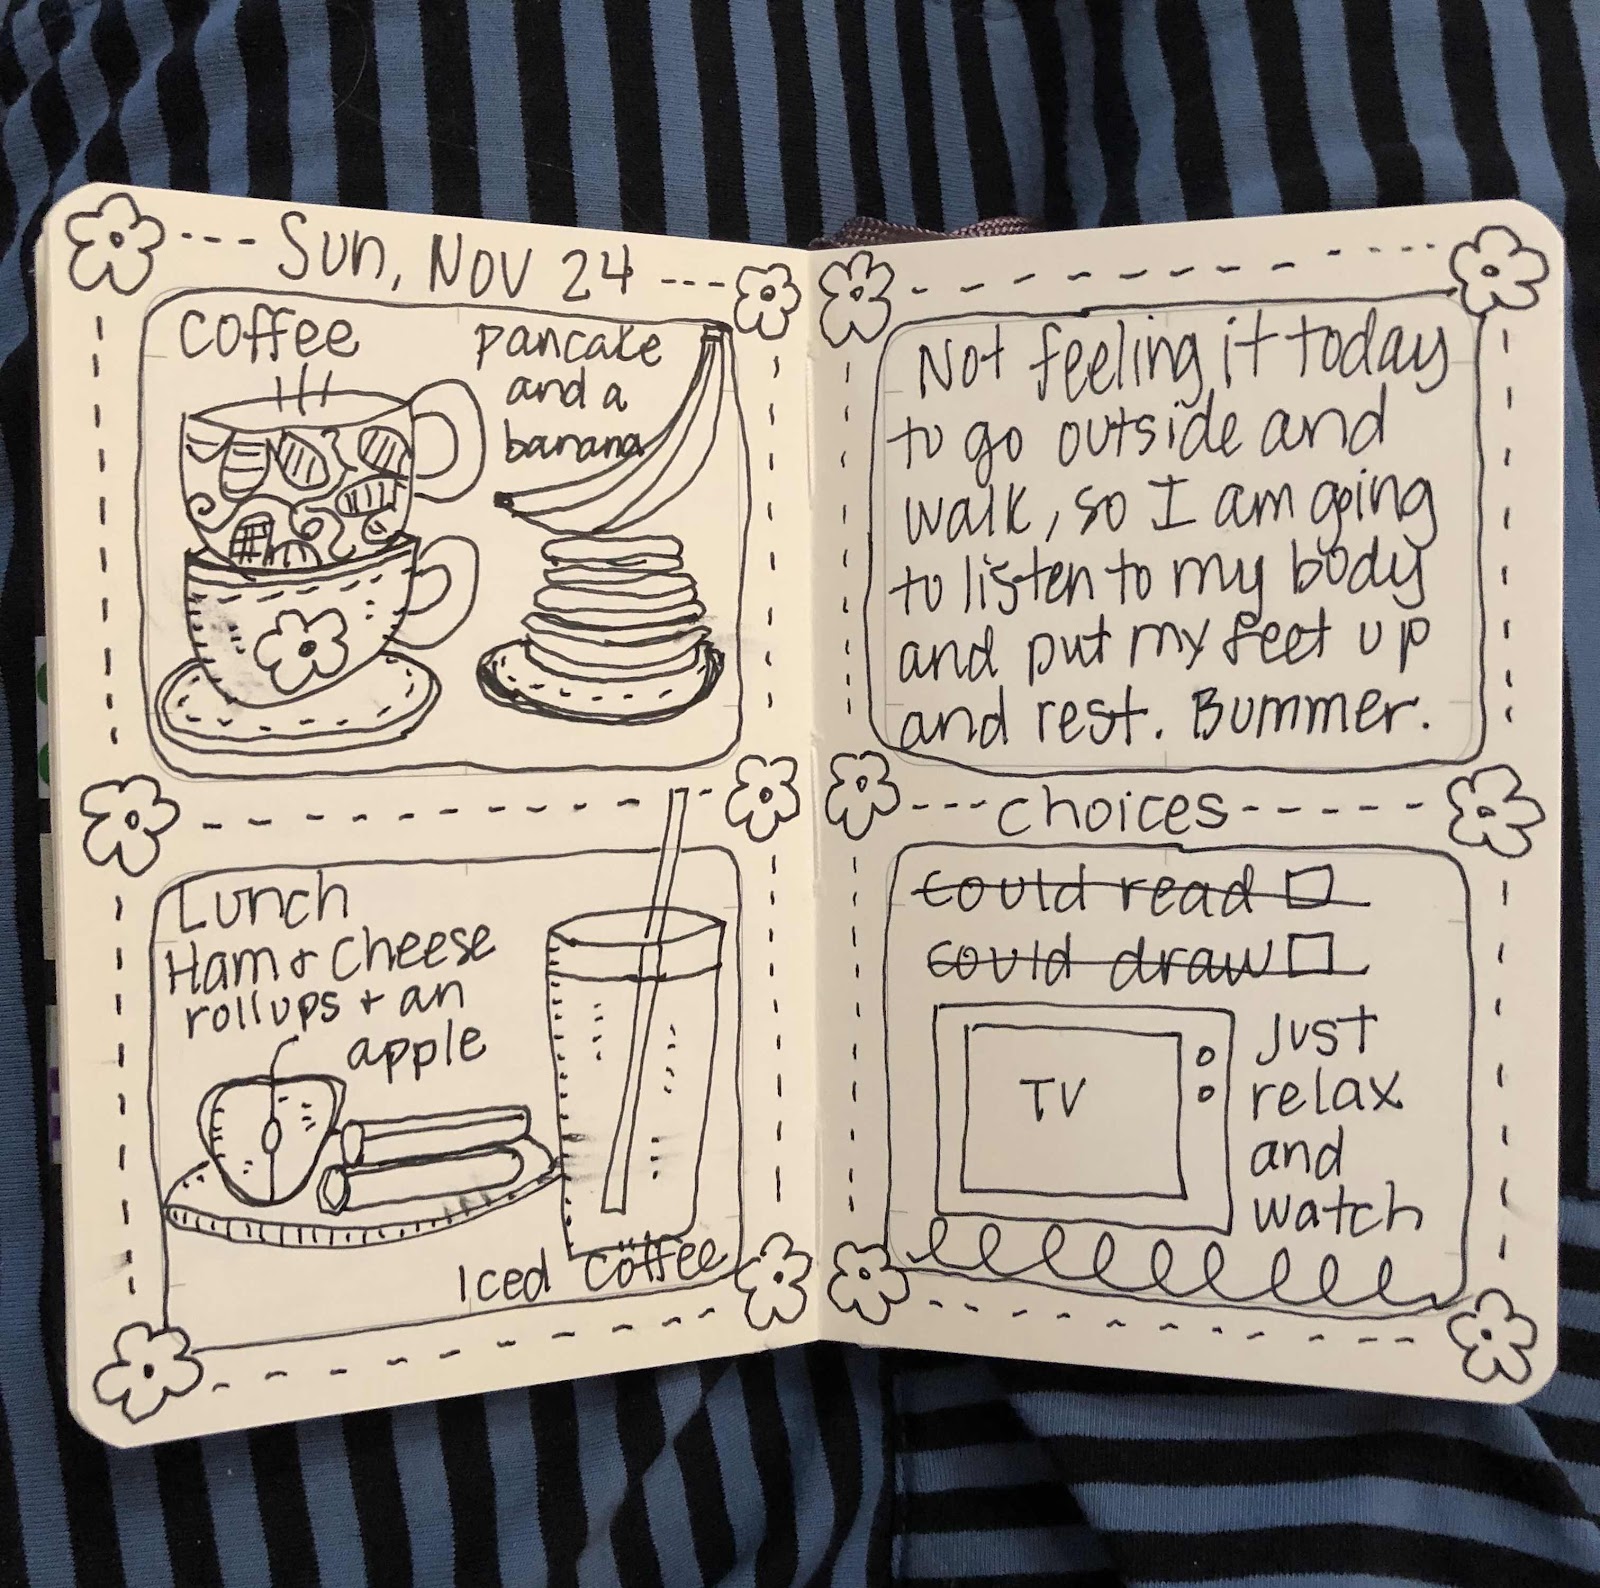 Sun, Nov 24
coffee
pancake
and a
banana
Lunch
Ham & cheese
rollups & an
apple
Iced coffee
Not feeling it today
to go outside and
walk, so I am going
to listen to my body
and put my feet up
and rest. Bummer.
choices
could read
could draw
TV
Just
relax
and
watch